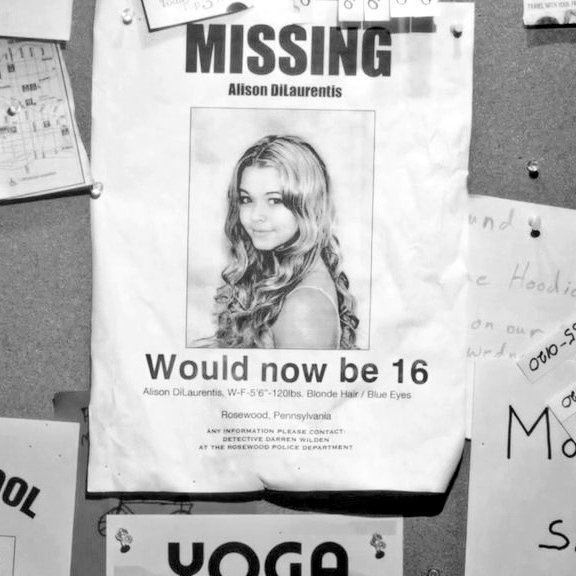 MISSING
Alison DiLaurentis
Would now be 16
Alison DiLaurentis, W-F-5'6"-120lbs. Blonde Hair / Blue Eyes
Rosewood, Pennsylvania
ANY INFORMATION PLEASE CONTACT:
DETECTIVE DARREN WILDEN
AT THE ROSEWOOD POLICE DEPARTMENT
und
e Hoodie
on our
0210-55
Mo
S
OOL
YOGA